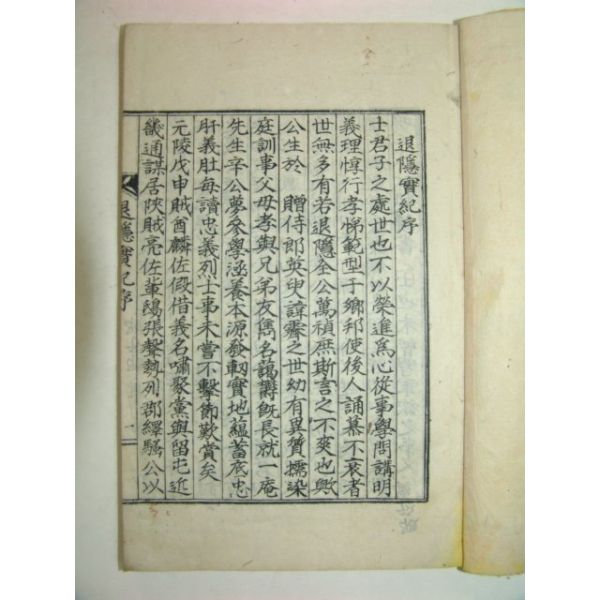 退隱實紀序
士君子之處世也不以榮進爲心從事學問講明
義理惇行孝悌範型于鄕邦使後人誦慕不衰者
世無多有若退隱全公萬禎庶斯言之不爽也歟
公生於 贈侍郎英叟諱霽之世幼有異質擩染
庭訓事父母孝與兄弟友雋名藹蔚旣長就一庵
先生辛公夢參學涵養本源發軔實地蘊蓄底忠
肝義肚每讀忠義烈士事未嘗不擊節歎賞矣
元陵戊申賊酋麟佐假借義名嘯聚黨與留屯近
畿通謀居陜賊亮佐輩鴟張聲勢列郡繹騷公以
退隱實紀序
一